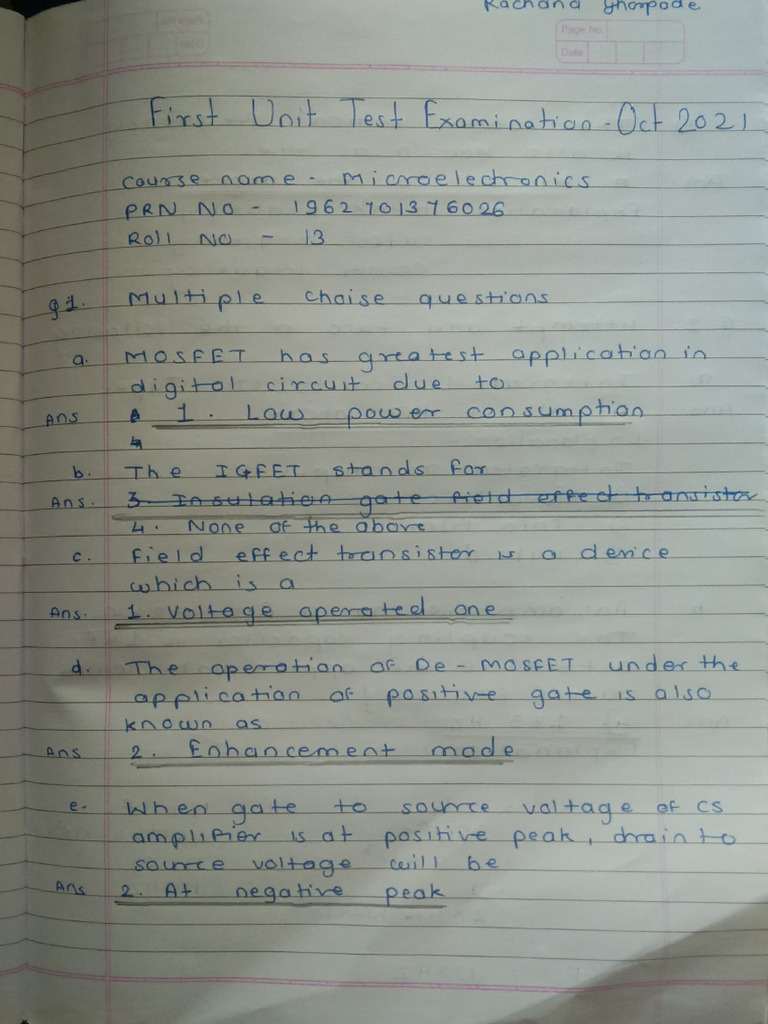 Rachana Ghorpade
Page No.
Date
First Unit Test Examination - Oct 2021
course name - Microelectronics
PRN NO - 1962701376026
Roll NO - 13
Q1. Multiple choise questions
a. MOSFET has greatest application in
digital circuit due to
Ans 1. Low power consumption
b. The IGFET stands for
Ans. 3. Insulation gate field effect transistor
4. None of the above
c. Field effect transistor is a device
which is a
Ans. 1. voltage operated one
d. The operation of De-MOSFET under the
application of positive gate is also
known as
Ans 2. Enhancement mode
e. When gate to source voltage of CS
amplifier is at positive peak, drain to
source voltage will be
Ans 2. At negative peak